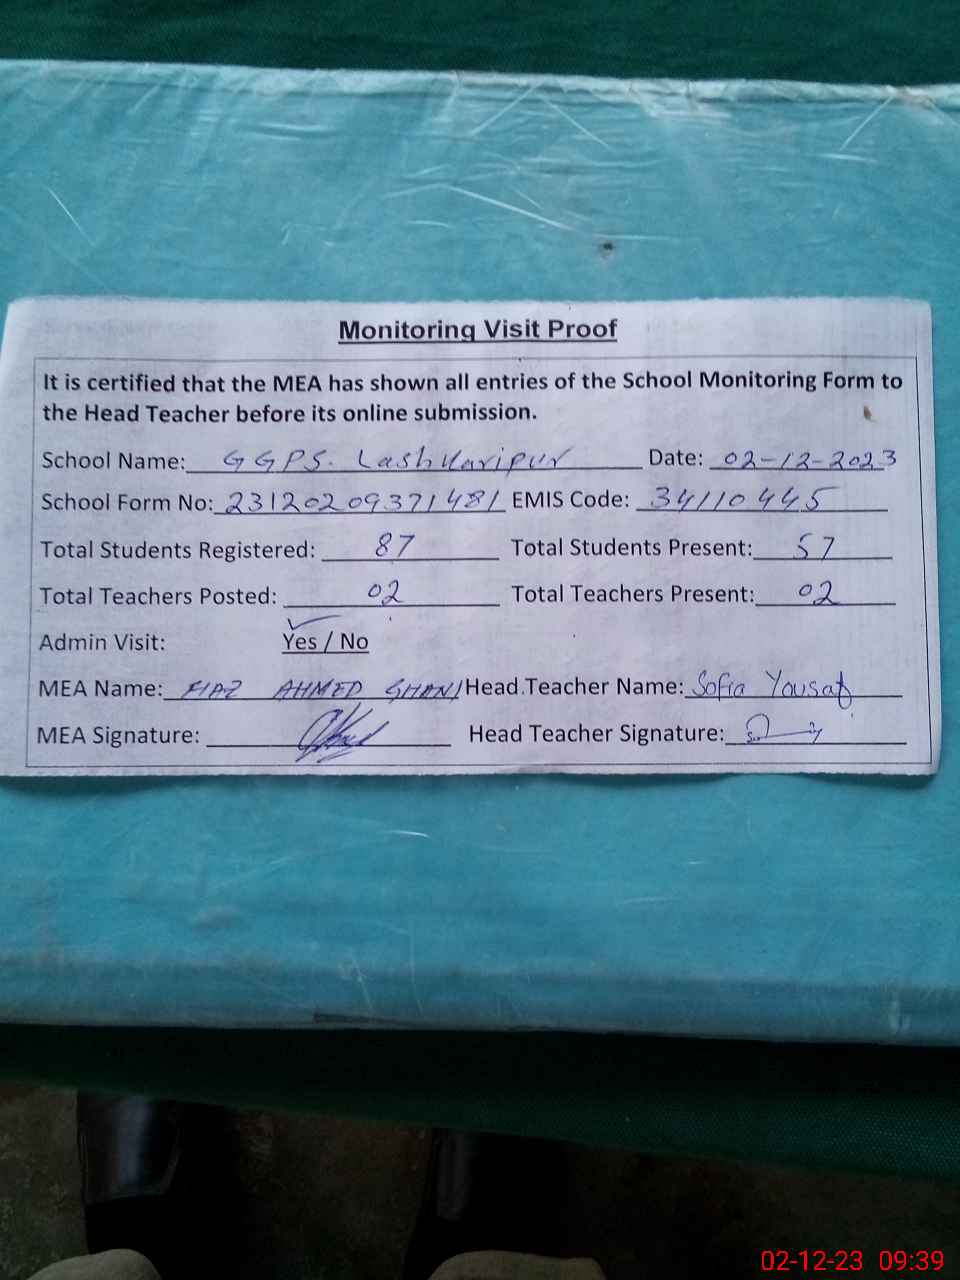 Monitoring Visit Proof
It is certified that the MEA has shown all entries of the School Monitoring Form to
the Head Teacher before its online submission.
School Name: GGPS. Lashkaripur Date: 02-12-2023
School Form No: 23120209371481 EMIS Code: 34110445
Total Students Registered: 87 Total Students Present: 57
Total Teachers Posted: 02 Total Teachers Present: 02
Admin Visit: Yes / No
MEA Name: FIAZ AHMED GHANI Head Teacher Name: Sofia Yousaf
MEA Signature: Head Teacher Signature:
02-12-23 09:39